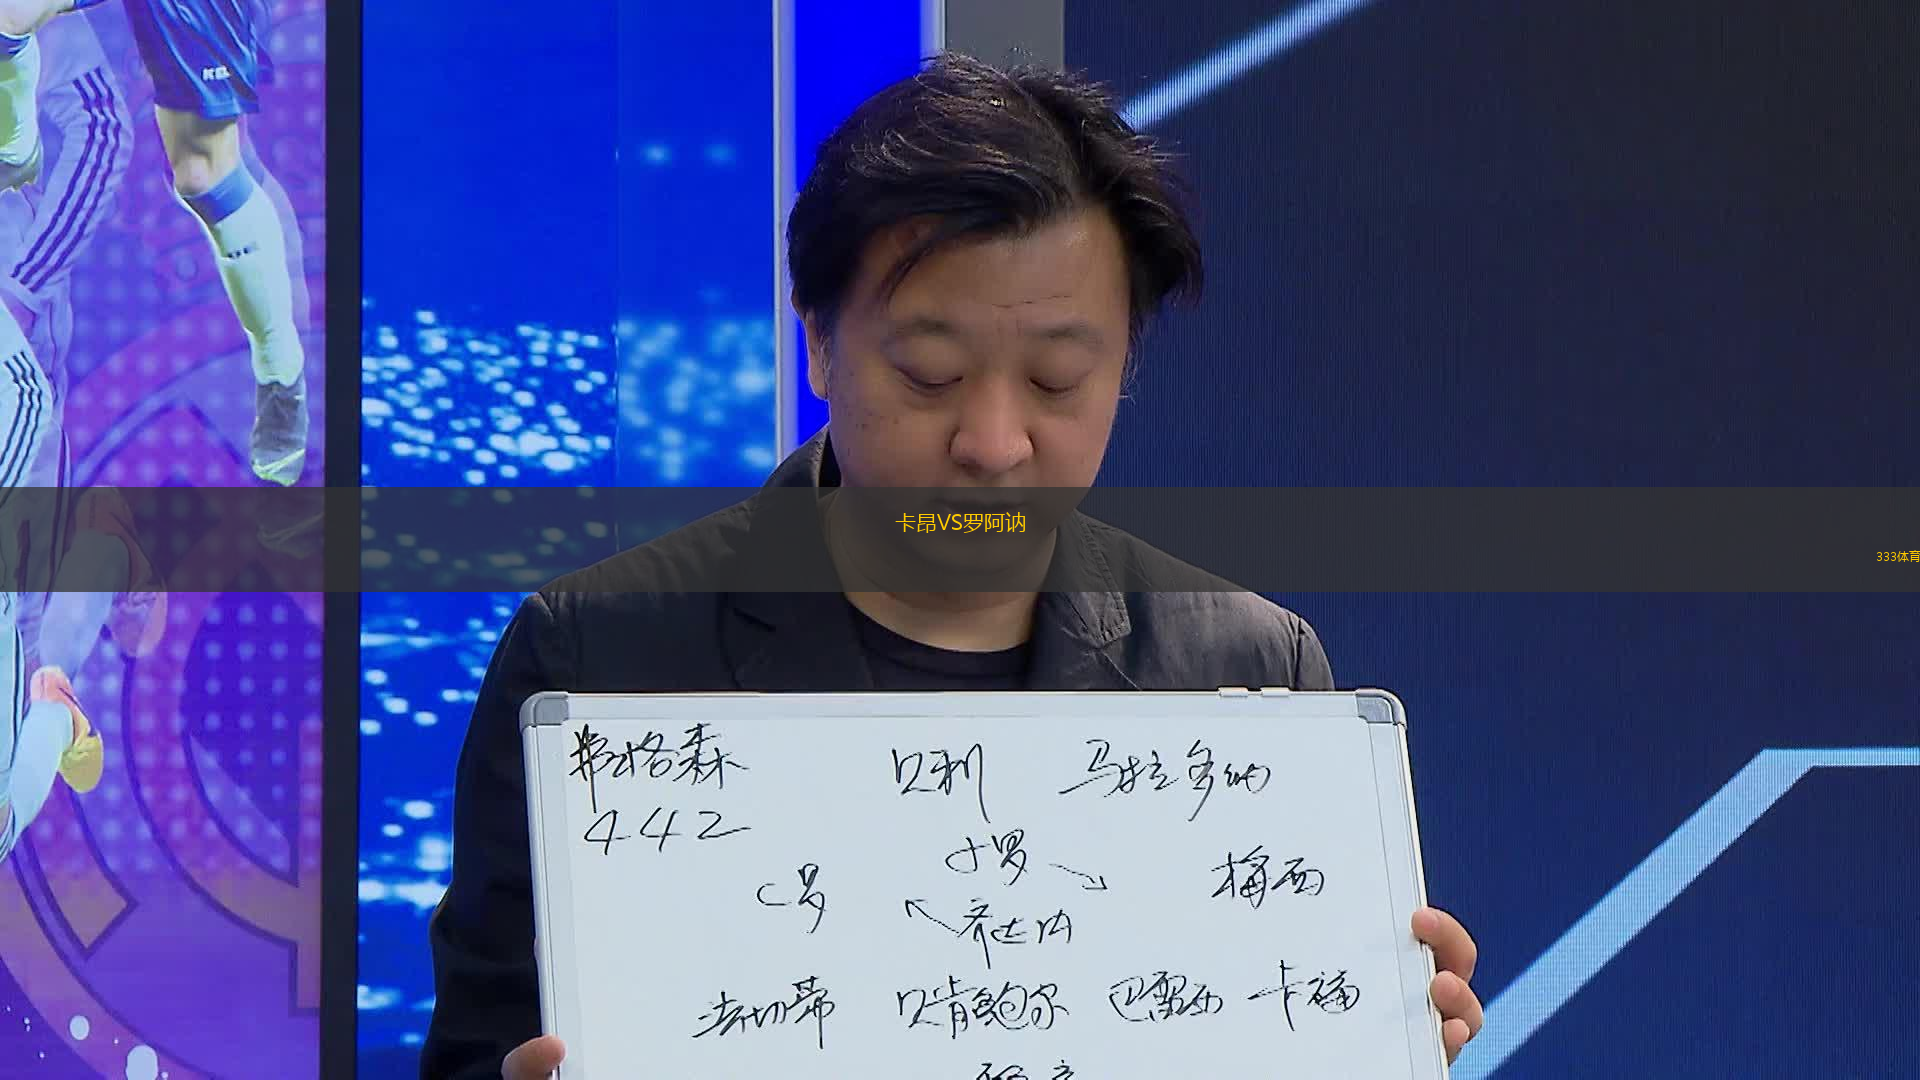 卡昂VS罗阿讷
333体育
弗格森 贝利 马拉多纳
442
小罗
C罗 梅西
齐达内
法切蒂 贝肯鲍尔 巴雷西 卡福